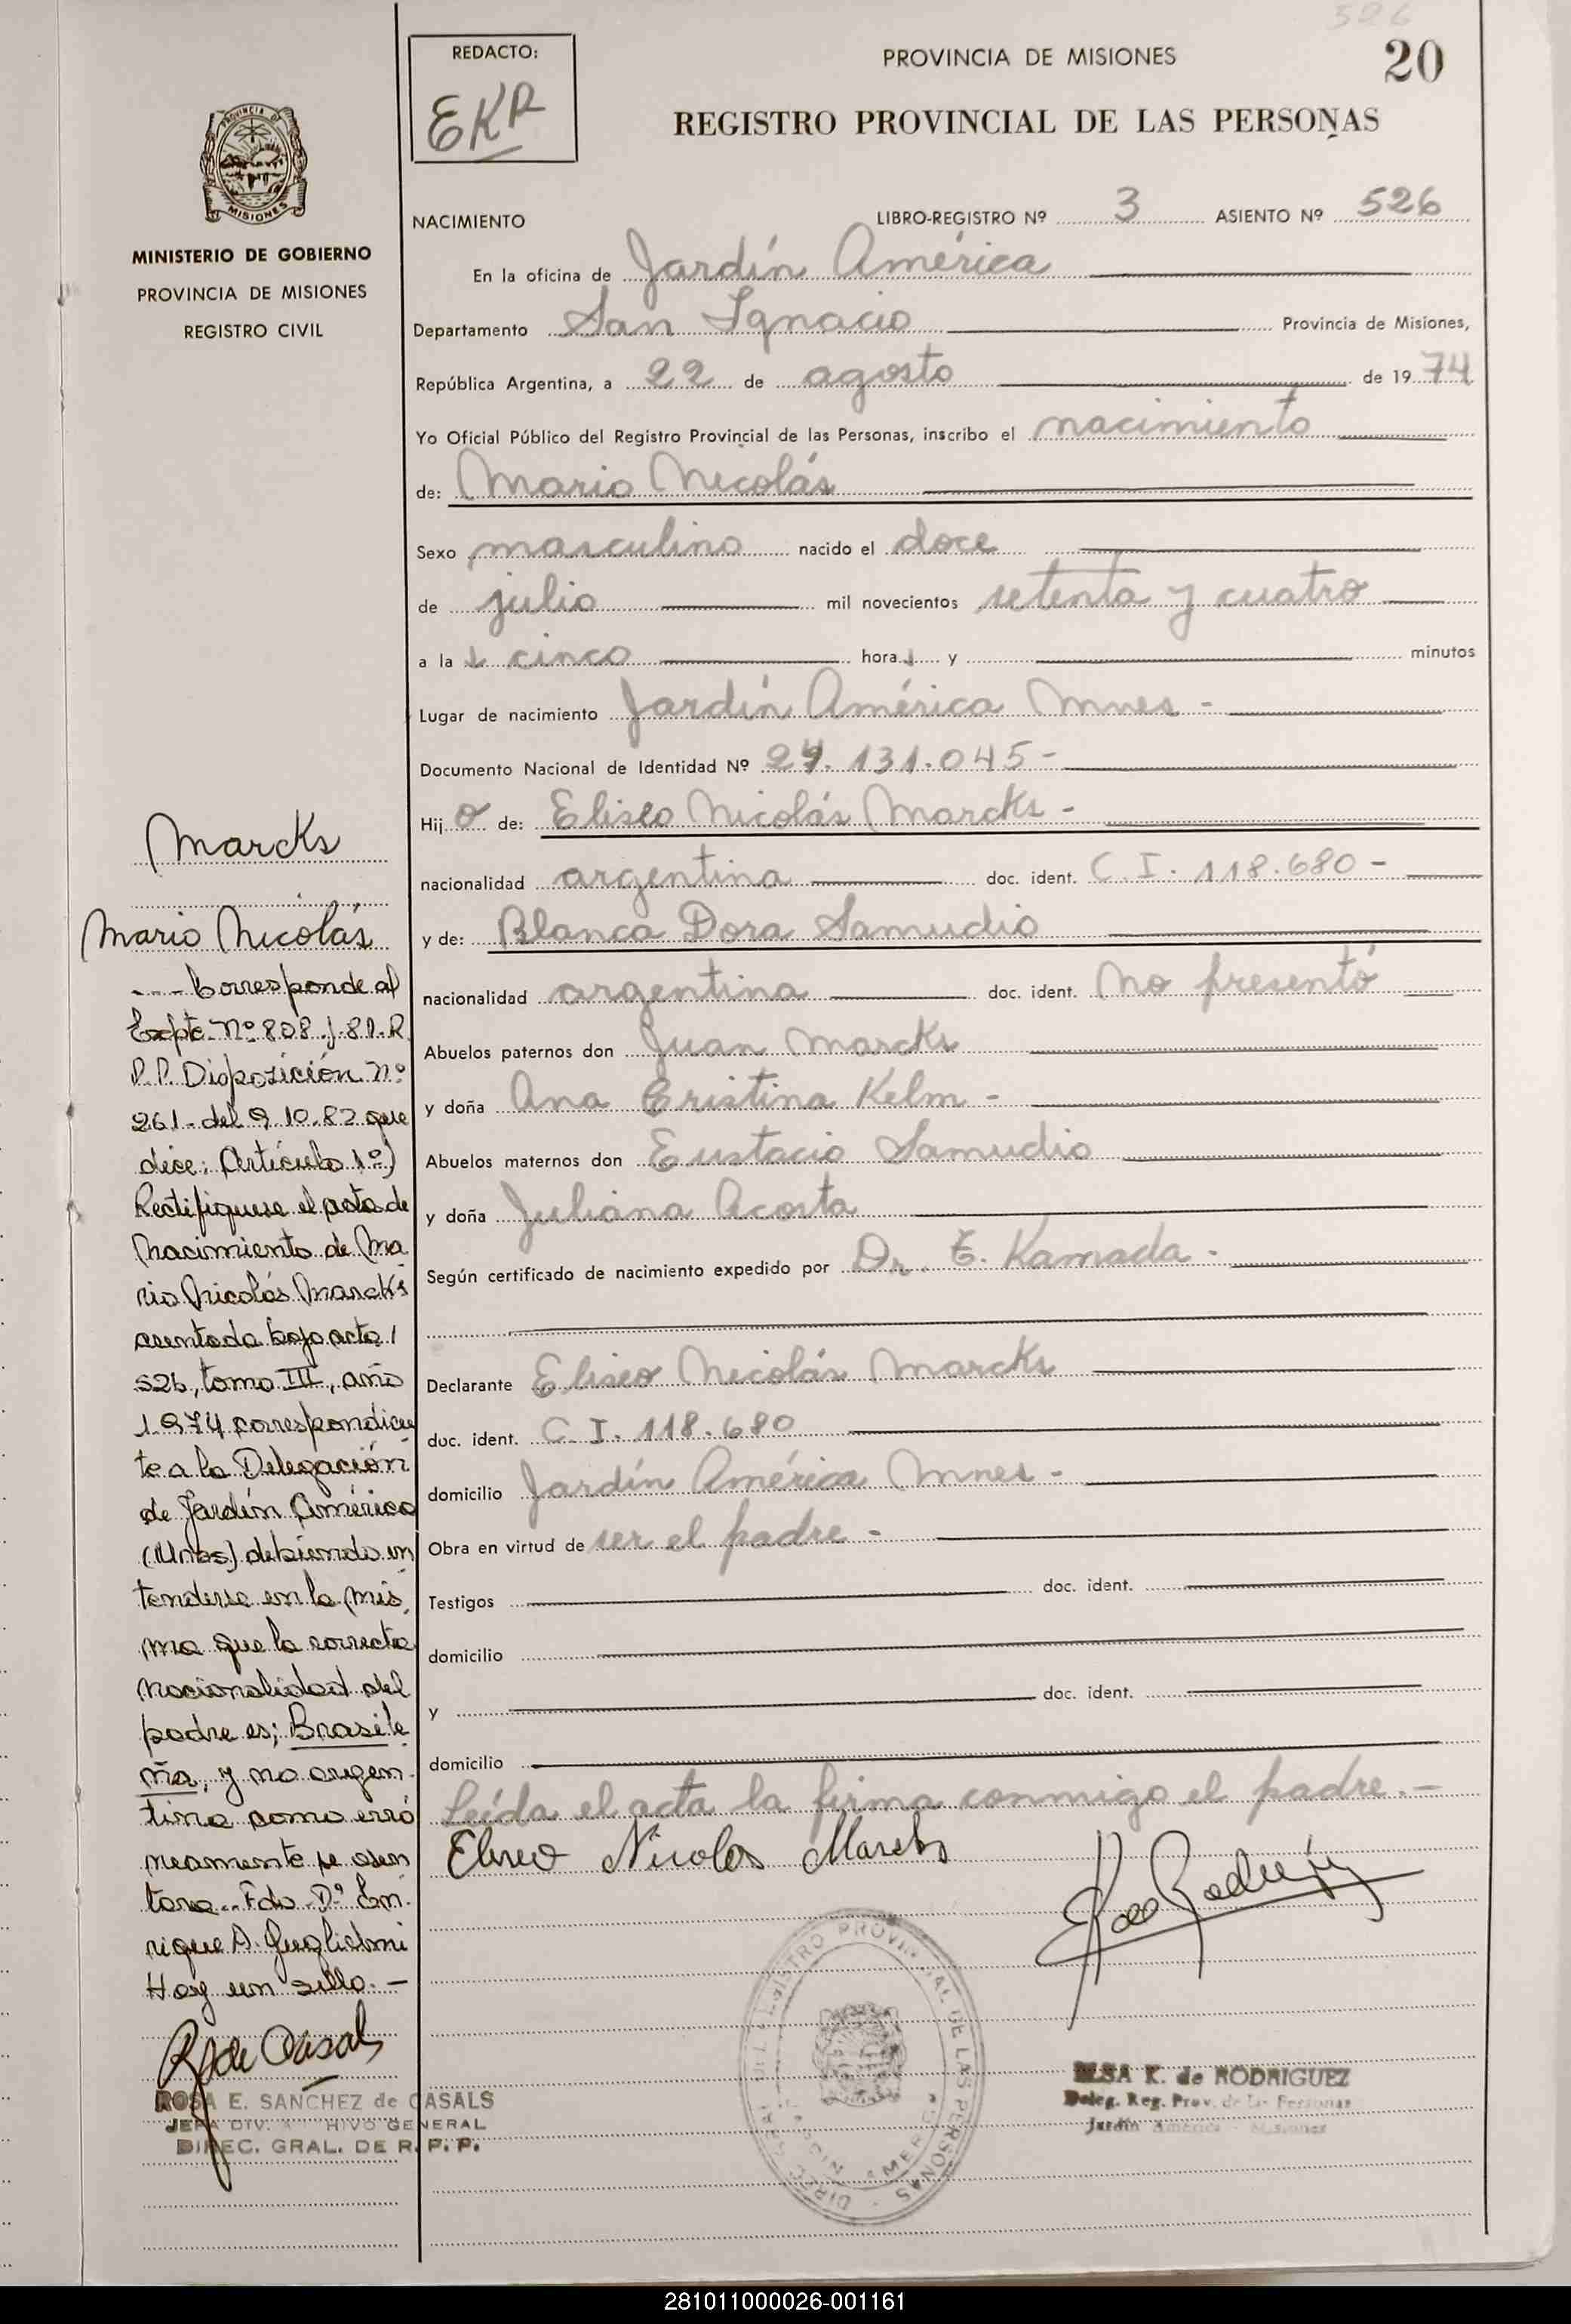 526
20
REDACTO:
EKR
PROVINCIA DE MISIONES
REGISTRO PROVINCIAL DE LAS PERSONAS
PROVINCIA DE
MISIONES
MINISTERIO DE GOBIERNO
PROVINCIA DE MISIONES
REGISTRO CIVIL
NACIMIENTO LIBRO-REGISTRO Nº 3 ASIENTO Nº 526
En la oficina de Jardín América
Departamento San Ignacio Provincia de Misiones,
República Argentina, a 22 de agosto de 1974
Yo Oficial Público del Registro Provincial de las Personas, inscribo el nacimiento
de: Mario Nicolás
Sexo masculino nacido el doce
de julio mil novecientos setenta y cuatro
a las cinco horas y minutos
Lugar de nacimiento Jardín América Mnes -
Documento Nacional de Identidad Nº 24.131.045 -
Hijo de: Eliseo Nicolás Marcks -
nacionalidad argentina doc. ident. C.I. 118.680 -
y de: Blanca Dora Samudio
nacionalidad argentina doc. ident. no presentó
Abuelos paternos don Juan Marcks
y doña Ana Cristina Kelm -
Abuelos maternos don Eustacio Samudio
y doña Juliana Acosta
Según certificado de nacimiento expedido por Dr. E. Kamada -
Declarante Eliseo Nicolás Marcks
doc. ident. C.I. 118.680
domicilio Jardín América Mnes -
Obra en virtud de ser el padre -
Testigos doc. ident.
domicilio
y doc. ident.
domicilio
Leída el acta la firma conmigo el padre. -
Eliseo Nicolos Marcks
Marcks
Mario Nicolás
---- Corresponde al
Expte Nº 808-J-81-R
P.P. Disposición. Nº
261 - del 9.10.82 que
dice: Artículo 1º)
Rectifiquese el acta de
nacimiento de Ma
rio Nicolás Marcks
asentada bajo acta /
526, tomo III, año
1974 correspondien
te a la Delegación
de Jardín América
(Mnes) debiendo en
tenderse en la mis
ma que la correcta
nacionalidad del
padre es; Brasile
ña, y no argen
tina como erró
neamente se asen
tara.. Fdo. Dº En
rique A. Guglielmi
Hay un sello. -
R de Casals
ROSA E. SANCHEZ de CASALS
JEFA DIV. ARCHIVO GENERAL
DIREC. GRAL. DE R. P. P.
REGISTRO PROVINCIAL DE LAS PERSONAS
JARDIN AMERICA
ELSA K. de RODRIGUEZ
Deleg. Reg. Prov. de las Personas
Jardín América - Misiones
281011000026-001161